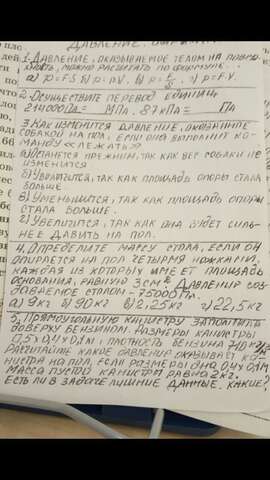 ДАВЛЕНИЕ.
1. ДАВЛЕНИЕ, ОКАЗЫВАЕМОЕ ТЕЛОМ НА ПОВЕРХ-
НОСТЬ, МОЖНО РАССЧИТАТЬ ПО ФОРМУЛЕ...
а) p=FS б) p=ρV. в) p=F/S. г) p=F·V.
2. ОСУЩЕСТВИТЕ ПЕРЕВОД ЕДИНИЦ
МПа. 87кПа= ПА
3. КАК ИЗМЕНИТСЯ ДАВЛЕНИЕ, ОКАЗЫВАЕМОЕ
СОБАКОЙ НА ПОЛ, ЕСЛИ ОНА ВЫПОЛНИТ КО-
МАНДУ «ЛЕЖАТЬ»
а) ОСТАНЕТСЯ ПРЕЖНИМ, ТАК КАК ВЕС СОБАКИ НЕ
ИЗМЕНИТСЯ
б) УВЕЛИЧИТСЯ, ТАК КАК ПЛОЩАДЬ ОПОРЫ СТАЛА
БОЛЬШЕ
в) УМЕНЬШИТСЯ, ТАК КАК ПЛОЩАДЬ ОПОРЫ
СТАЛА БОЛЬШЕ.
г) УВЕЛИЧИТСЯ, ТАК КАК ОНА БУДЕТ СИЛЬ-
НЕЕ ДАВИТЬ НА ПОЛ.
4. ОПРЕДЕЛИТЕ МАССУ СТОЛА, ЕСЛИ ОН
ОПИРАЕТСЯ НА ПОЛ ЧЕТЫРМЯ НОЖКАМИ,
КАЖДАЯ ИЗ КОТОРЫХ ИМЕЕТ ПЛОЩАДЬ
ОСНОВАНИЯ, РАВНУЮ 3см². ДАВЛЕНИЕ СОЗ-
ДАВАЕМОЕ СТОЛОМ - 75000Па.
а) 9кг б) 90кг в) 2,25кг г) 22,5кг
5. ПРЯМОУГОЛЬНУЮ КАНИСТРУ ЗАПОЛНИЛИ
ДОВЕРХУ БЕНЗИНОМ. РАЗМЕРЫ КАНИСТРЫ
0,5×0,4×0,1м, ПЛОТНОСТЬ БЕНЗИНА 710кг/м³
РАССЧИТАЙТЕ КАКОЕ ДАВЛЕНИЕ ОКАЗЫВАЕТ КА-
НИСТРА НА ПОЛ, ЕСЛИ РАЗМЕРЫ ДНА 0,4×0,1м
МАССА ПУСТОЙ КАНИСТРЫ РАВНА 2кг.
ЕСТЬ ЛИ В ЗАДАЧЕ ЛИШНИЕ ДАННЫЕ, КАКИЕ,